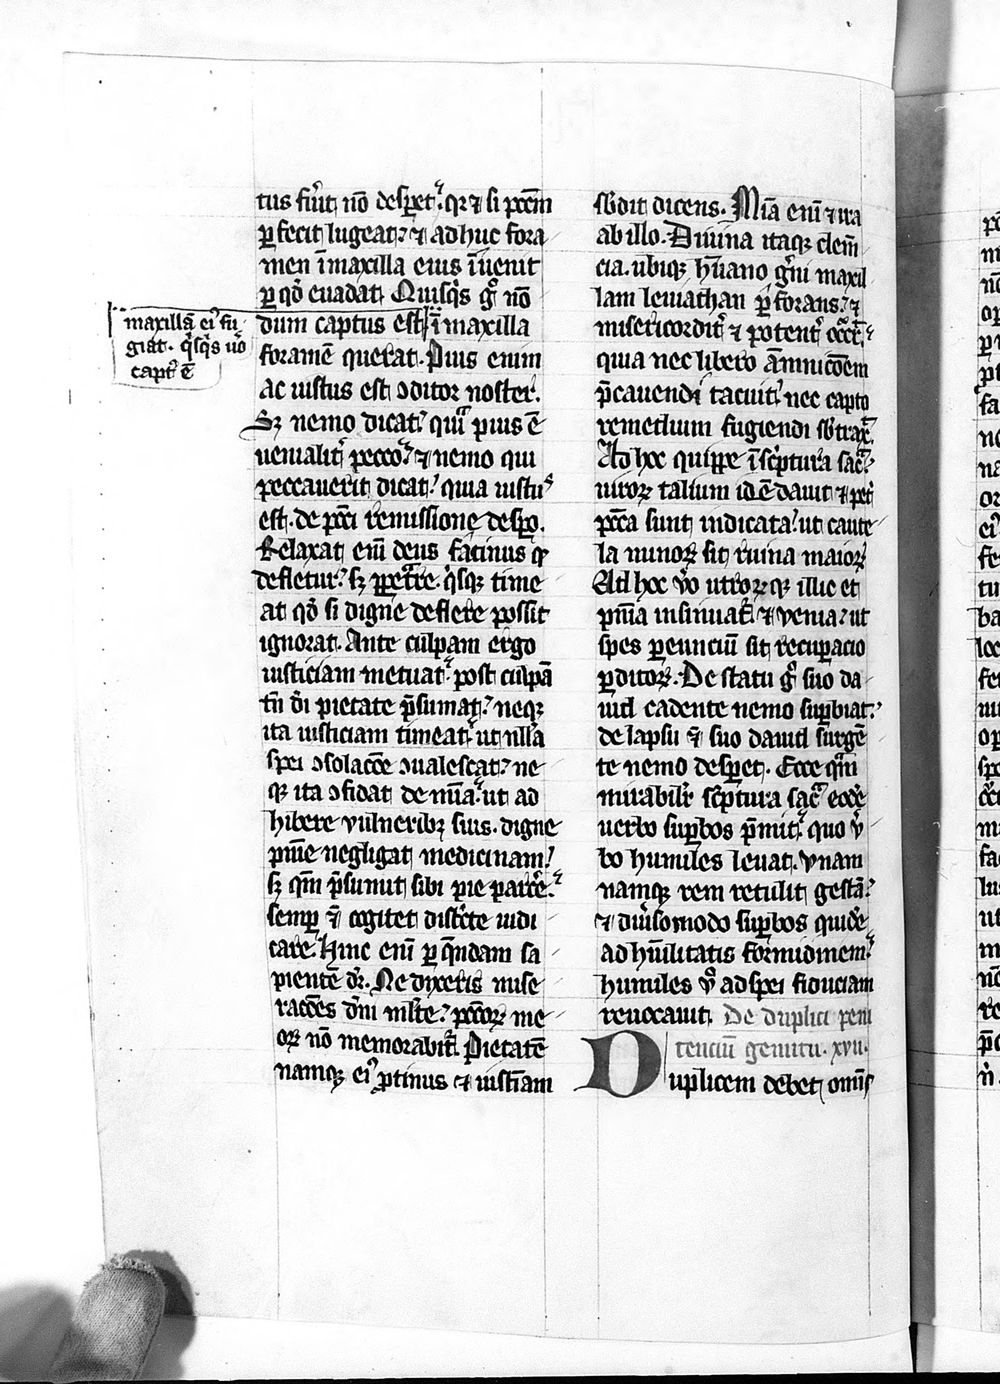 tus fu̾it nō desꝑet. qꝛ ⁊ si pcc̄m
ꝑfecit lugeat. ⁊ adhuc fora
men ī maxilla eius īuenit
ꝑ qd̾ euadat. Quisq̾s gͦ nō
maxillā ei᷒ fu
giat. q̾sq̾s uo
capt᷒ ē
dum captus est ī maxilla
foramē querat. Pius enim
ac iustus est ↄditor noster.
Sꝫ nemo dicat. quia pius ē
uenialit̾ pecco. ⁊ nemo qui
peccauerit dicat. quia iustu᷒
est. de pcc̄i remissione despo.
Relaxat eni̅ deus facinus qͦ
defletur. sꝫ ꝑpet̾re q̾sqꝫ time
at qd̾ si digne deflere possit
ignorat. Ante culpam ergo
iusticiam metuat. post culpā
tn̄ d̄i pietate p̄sumat. neqꝫ
ita iusticiam timeat. ut nll̄a
spei ↄsolacōe ↄualescat. ne
qꝫ ita ↄfidat de mīa. ut ad
hibere vulneribꝫ suis. digne
pnīe negligat medicinam.
sꝫ qm̄ p̄sumit sibi pie parcere.
semꝑ ⁊ cogitet districte iudi
care. Hinc eni̅ ꝑ quendam sa
piente dr̄. Ne dixeris mise
racōes dn̄i mlt̄e. pccōꝝ me
oꝝ nō memorabit᷒. Pietatē
namqꝫ ei᷒ ꝓtinus ⁊ iustiam
sb̾dit dicens. Mīa eni̅ ⁊ ira
ab illo. Diuina itaqꝫ clem̄
cia. ubiqꝫ hu̅ano gn̄i maxil
lam leuiathan ꝑforans. ⁊
misericordit̾ ⁊ potent̾ occ̾rit.
quia nec libero āmnicōem
p̄cauendi tacuit. nec capto
remedium fugiendi sb̾trax̄.
Ad hoc quippe ī sc̾ptura sac̾
uiroꝝ talium id ē dauit ⁊ pet̾
pcc̄a sunt indicata. ut caute
la minoꝝ sit ruina maioꝝ
Ad hoc v̾o utroꝝqꝫ illic et
pnīa insinuat᷒ ⁊ venia. ut
spes pereunciu̅ sit recuꝑacio
ꝑditoꝝ. De statu gͦ suo da
uid cadente nemo suꝑbiat.
de lapsu ⁊ suo dauid surgē
te nemo desꝑet. Ecce q̾m
mirabilit̾ sc̾ptura sac̾ eodē
uerbo suꝑbos p̄mit. quo v̾
bo humiles leuat. Vnam
namqꝫ rem retulit gestā.
⁊ diu̾so modo suꝑbos quidē
ad hu̅ilitatis formidinem.
humiles v̾o ad spei fiduciam
reuocauit. De duplici peni
tenciu̅ gemitu. xvii.
Duplicem debet omīs